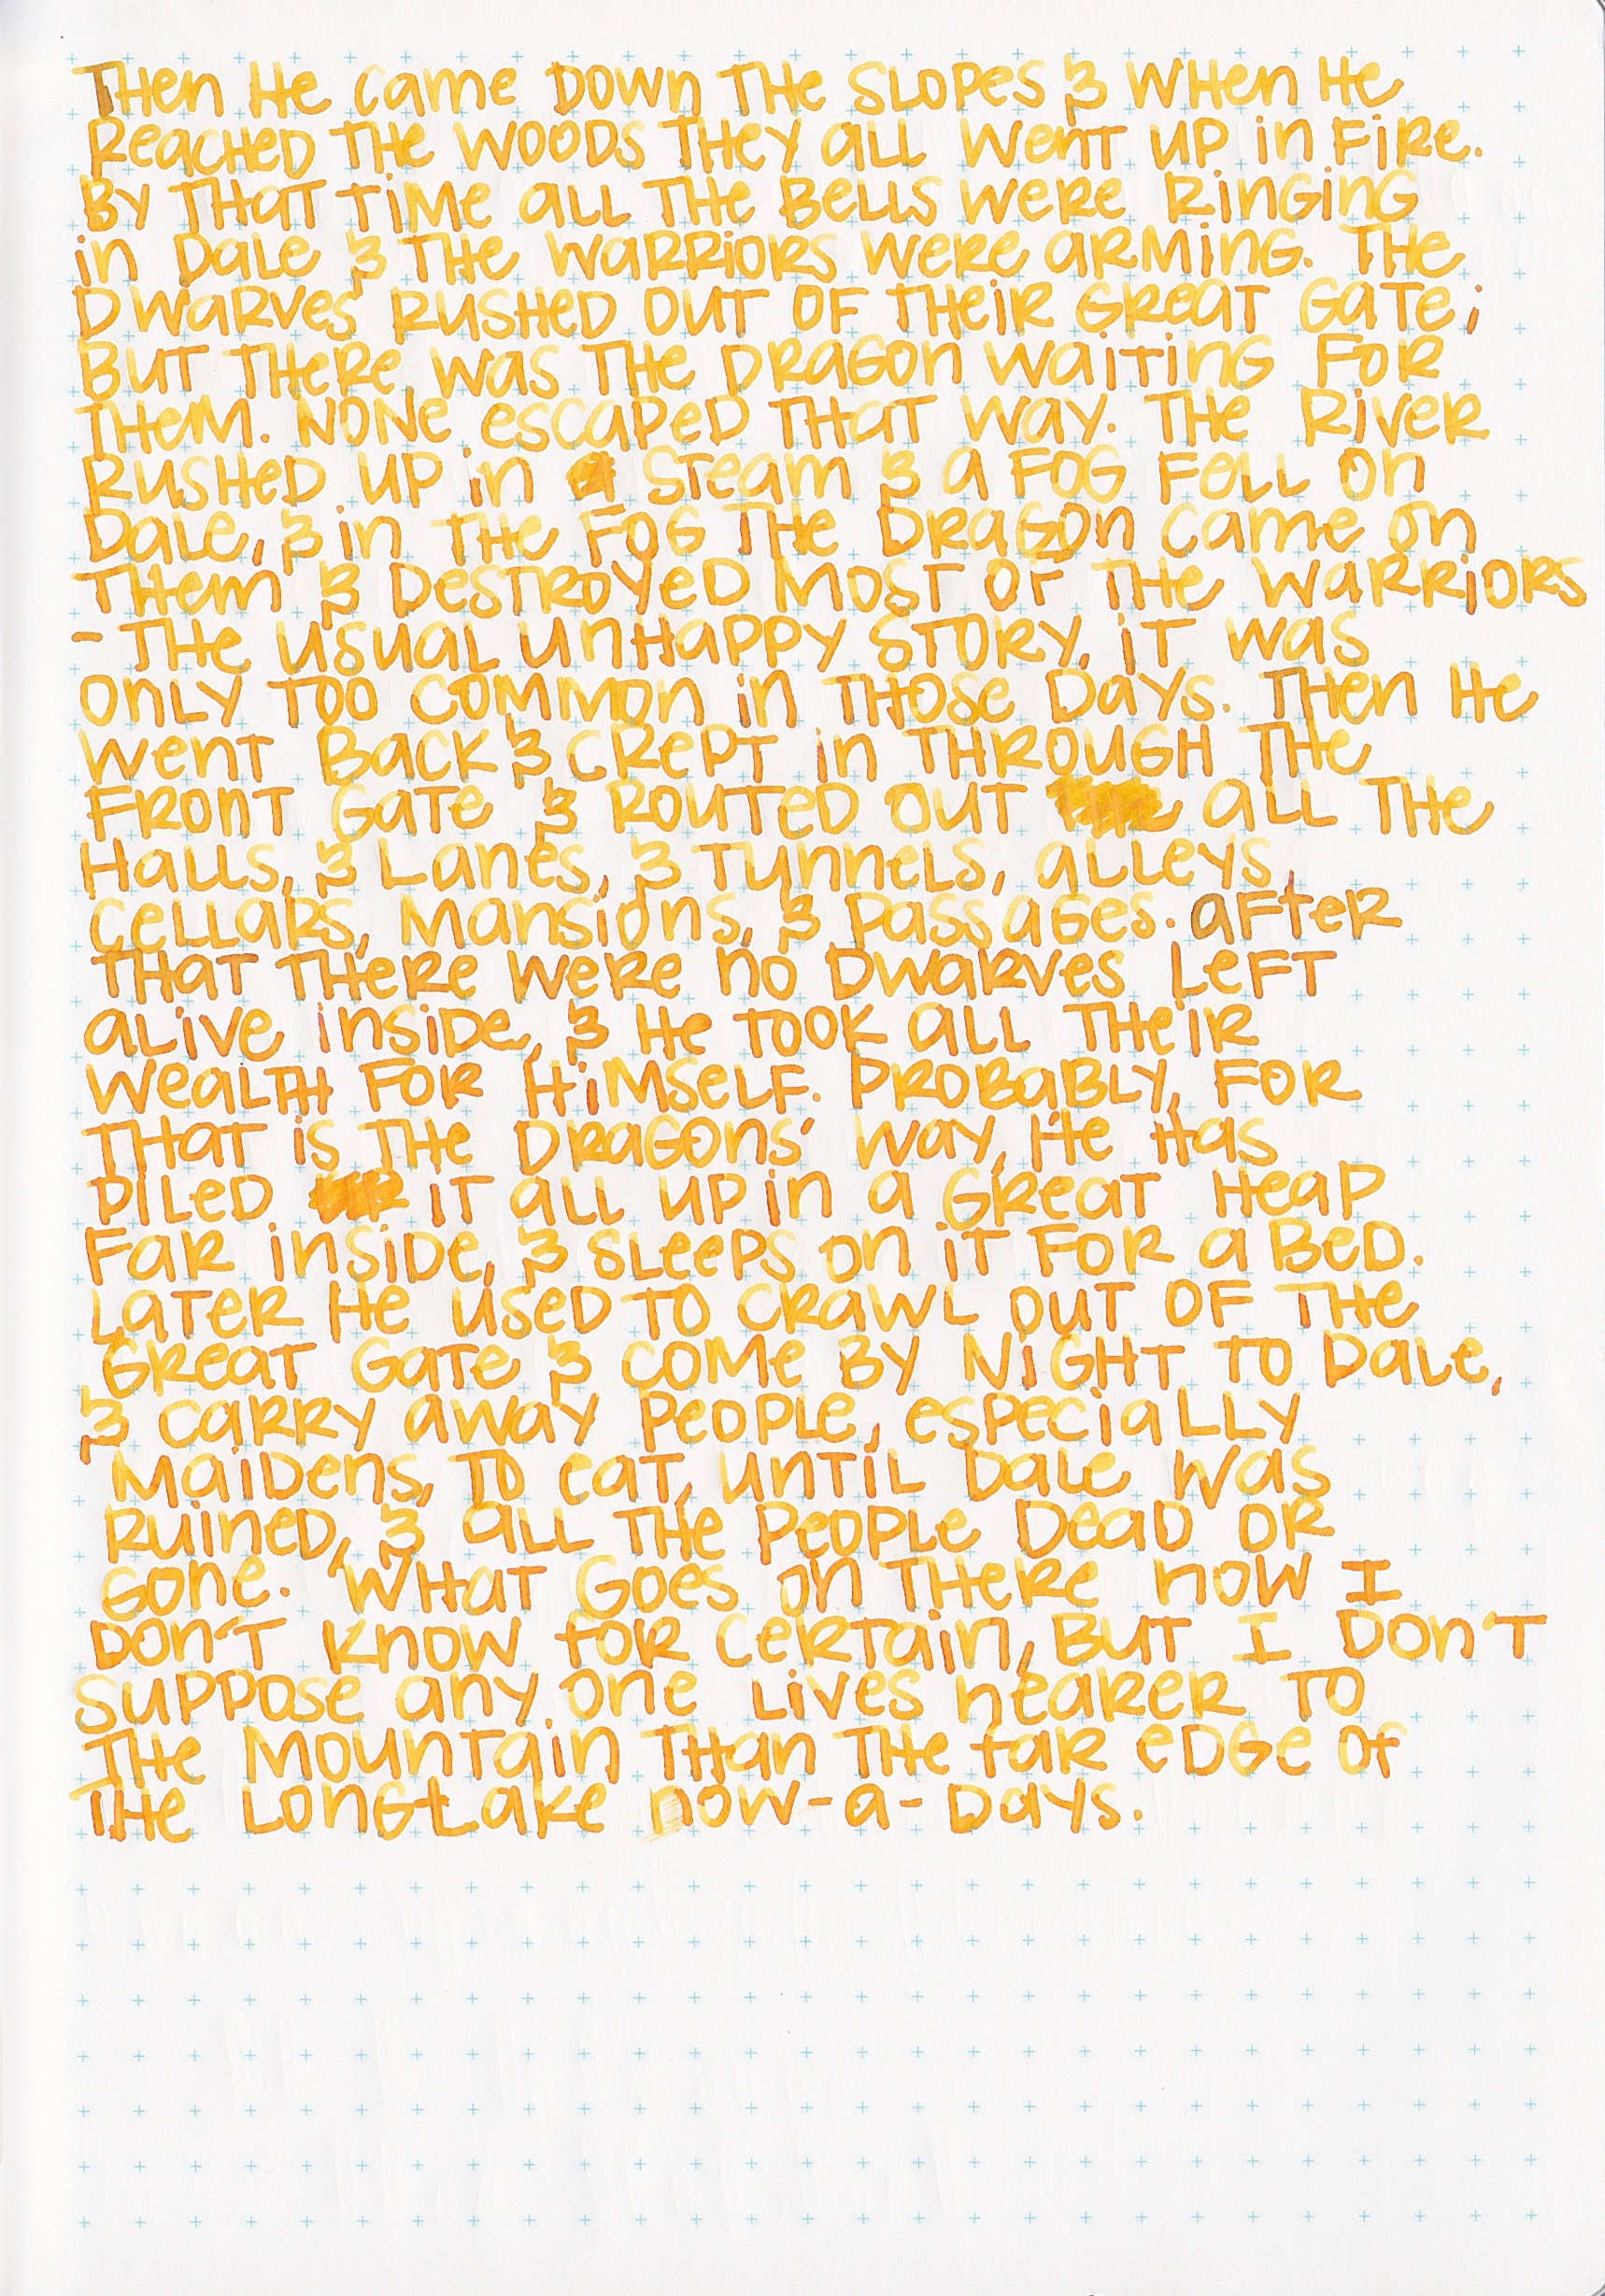 Then He came down the slopes & when He
reached the woods they all went up in fire.
By that time all the bells were ringing
in Dale & the warriors were arming. The
dwarves rushed out of their great gate;
but there was the dragon waiting for
them. None escaped that way. The river
rushed up in steam & a fog fell on
Dale, & in the fog the dragon came on
them & destroyed most of the warriors
- the usual unhappy story, it was
only too common in those days. Then he
went back & crept in through the
Front Gate & routed out all the
halls, & lanes, & tunnels, alleys,
cellars, mansions, & passages. After
that there were no dwarves left
alive inside, & he took all their
wealth for himself. Probably, for
that is the dragons' way, he has
piled it all up in a great heap
far inside, & sleeps on it for a bed.
Later he used to crawl out of the
great gate & come by night to Dale,
& carry away people, especially
maidens, to eat, until Dale was
ruined, & all the people dead or
gone. What goes on there now I
don't know for certain, but I don't
suppose any one lives nearer to
the Mountain than the far edge of
the Long Lake now-a-days.